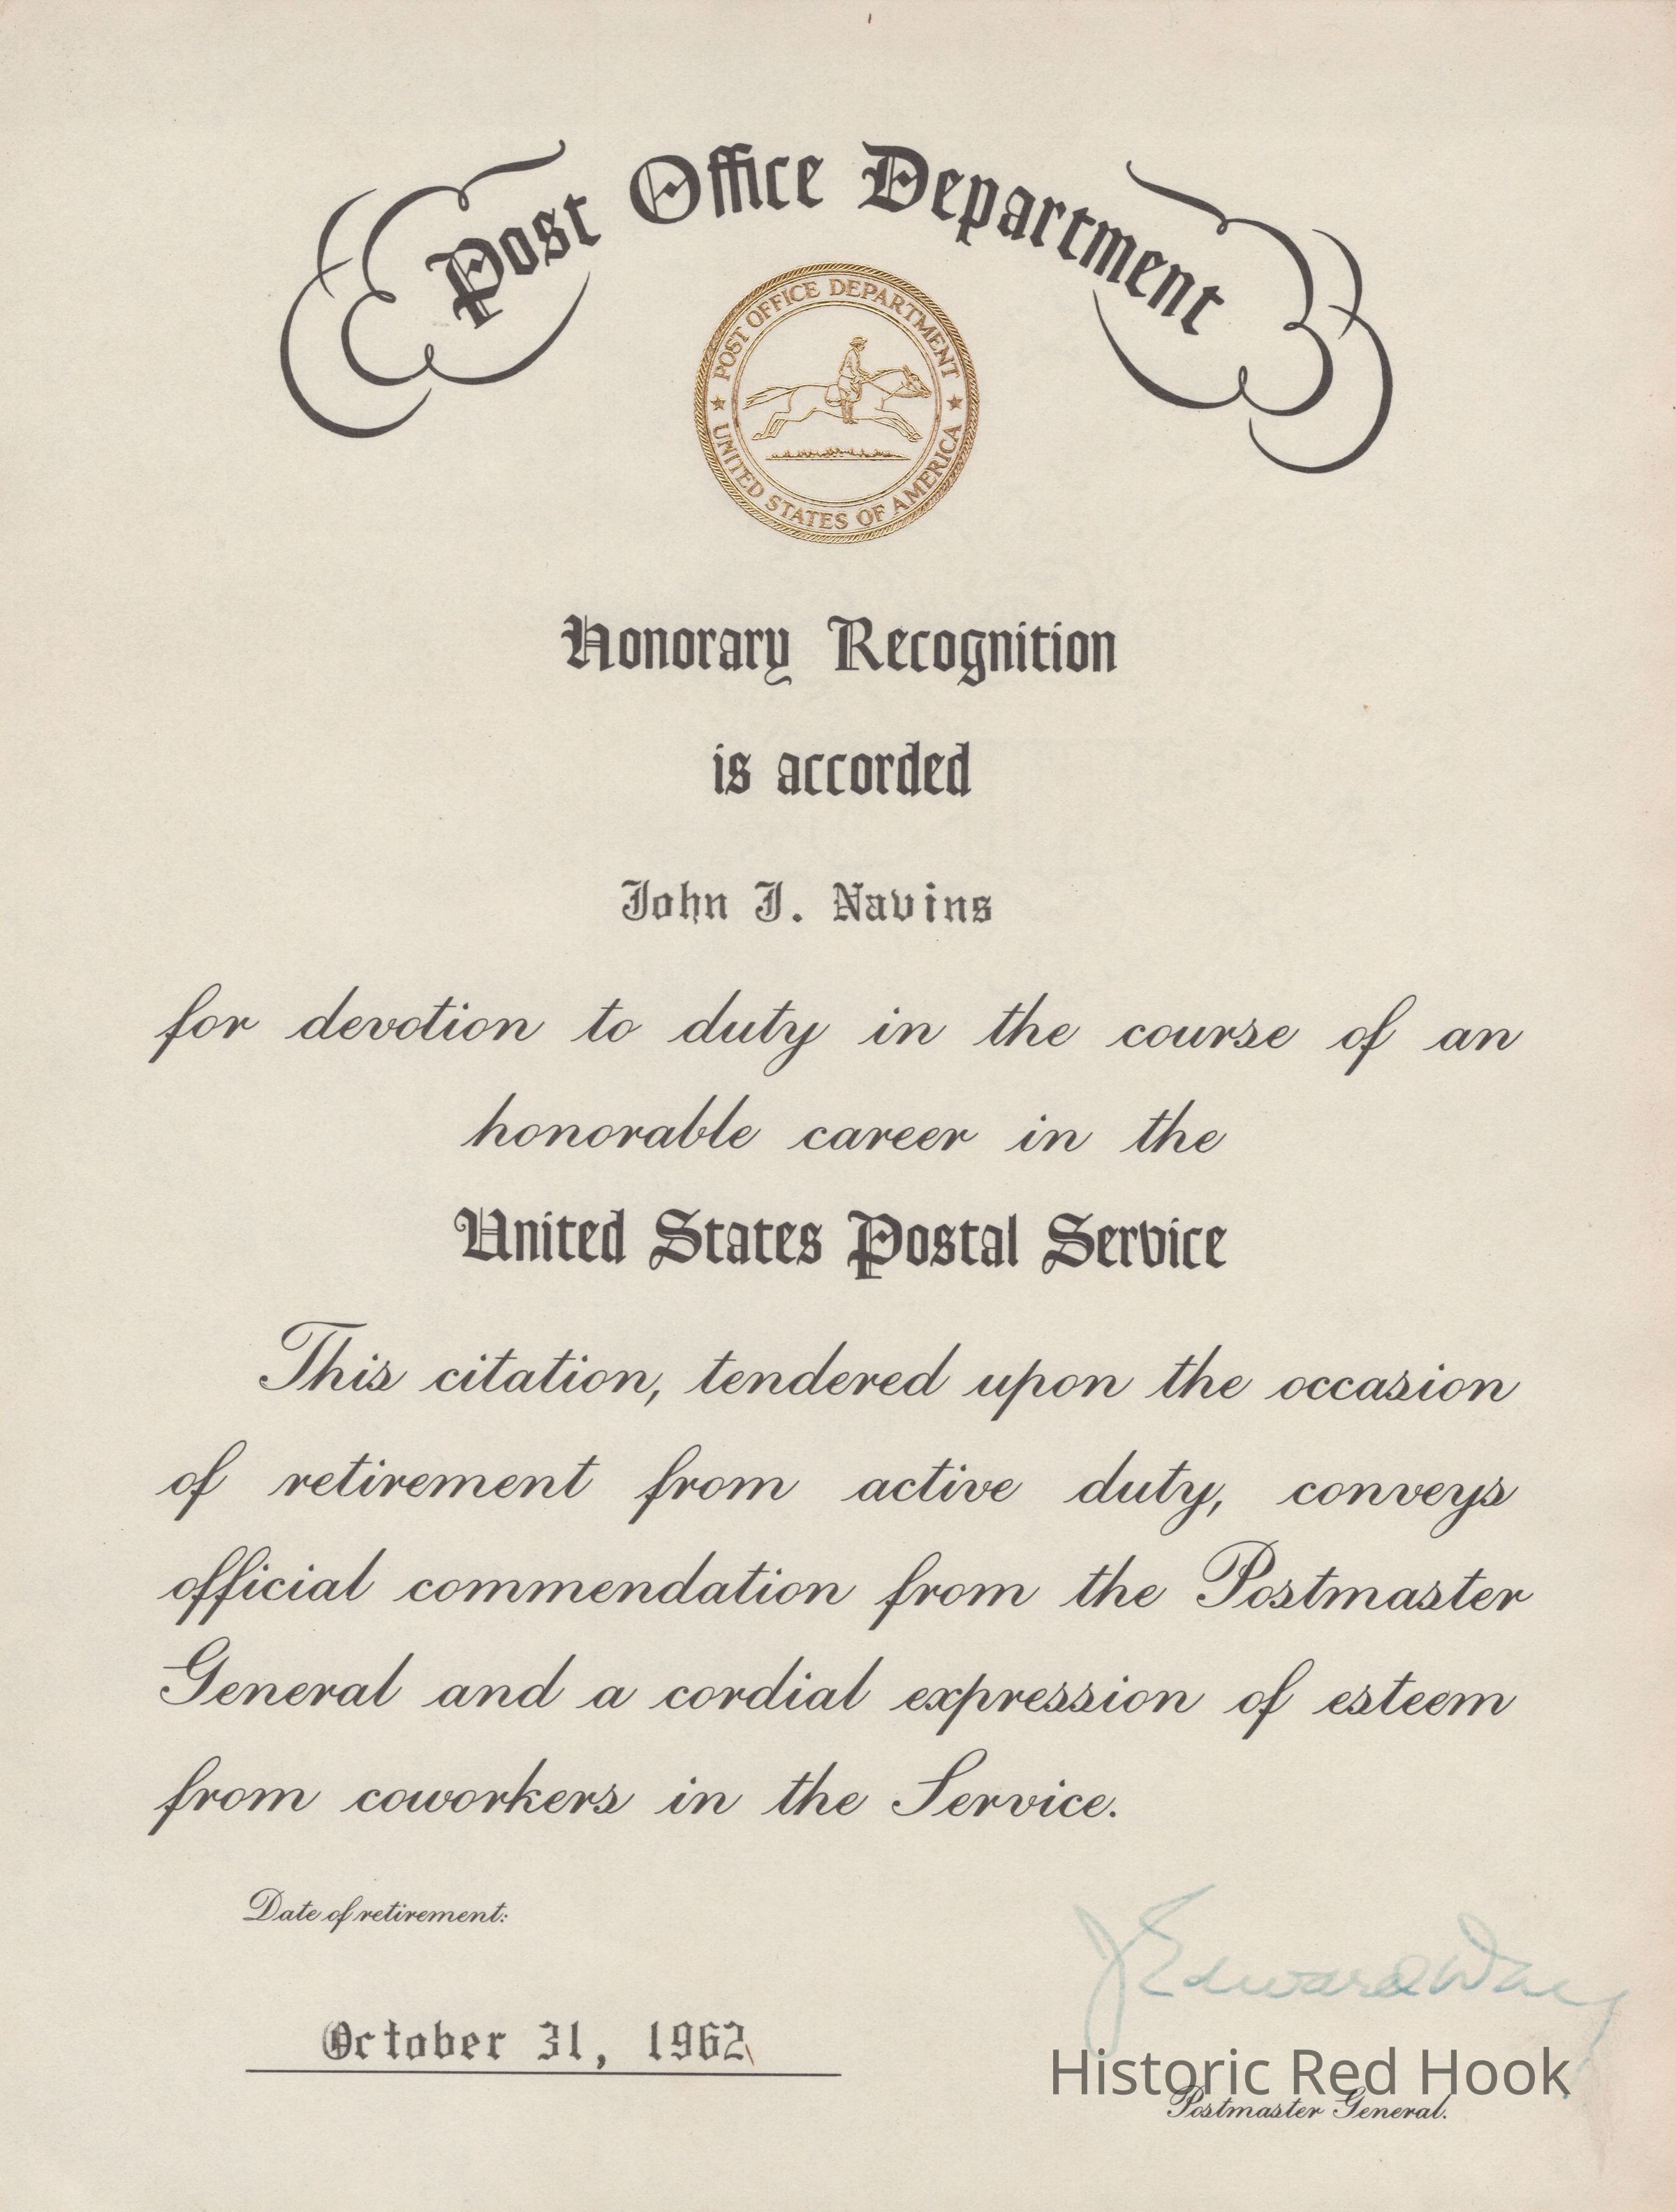 Post Office Department
POST OFFICE DEPARTMENT
★ UNITED STATES OF AMERICA ★
Honorary Recognition
is accorded
John J. Navins
for devotion to duty in the course of an
honorable career in the
United States Postal Service
This citation, tendered upon the occasion
of retirement from active duty, conveys
official commendation from the Postmaster
General and a cordial expression of esteem
from coworkers in the Service.
Date of retirement:
J Edward Day
October 31, 1962
Historic Red Hook
Postmaster General.